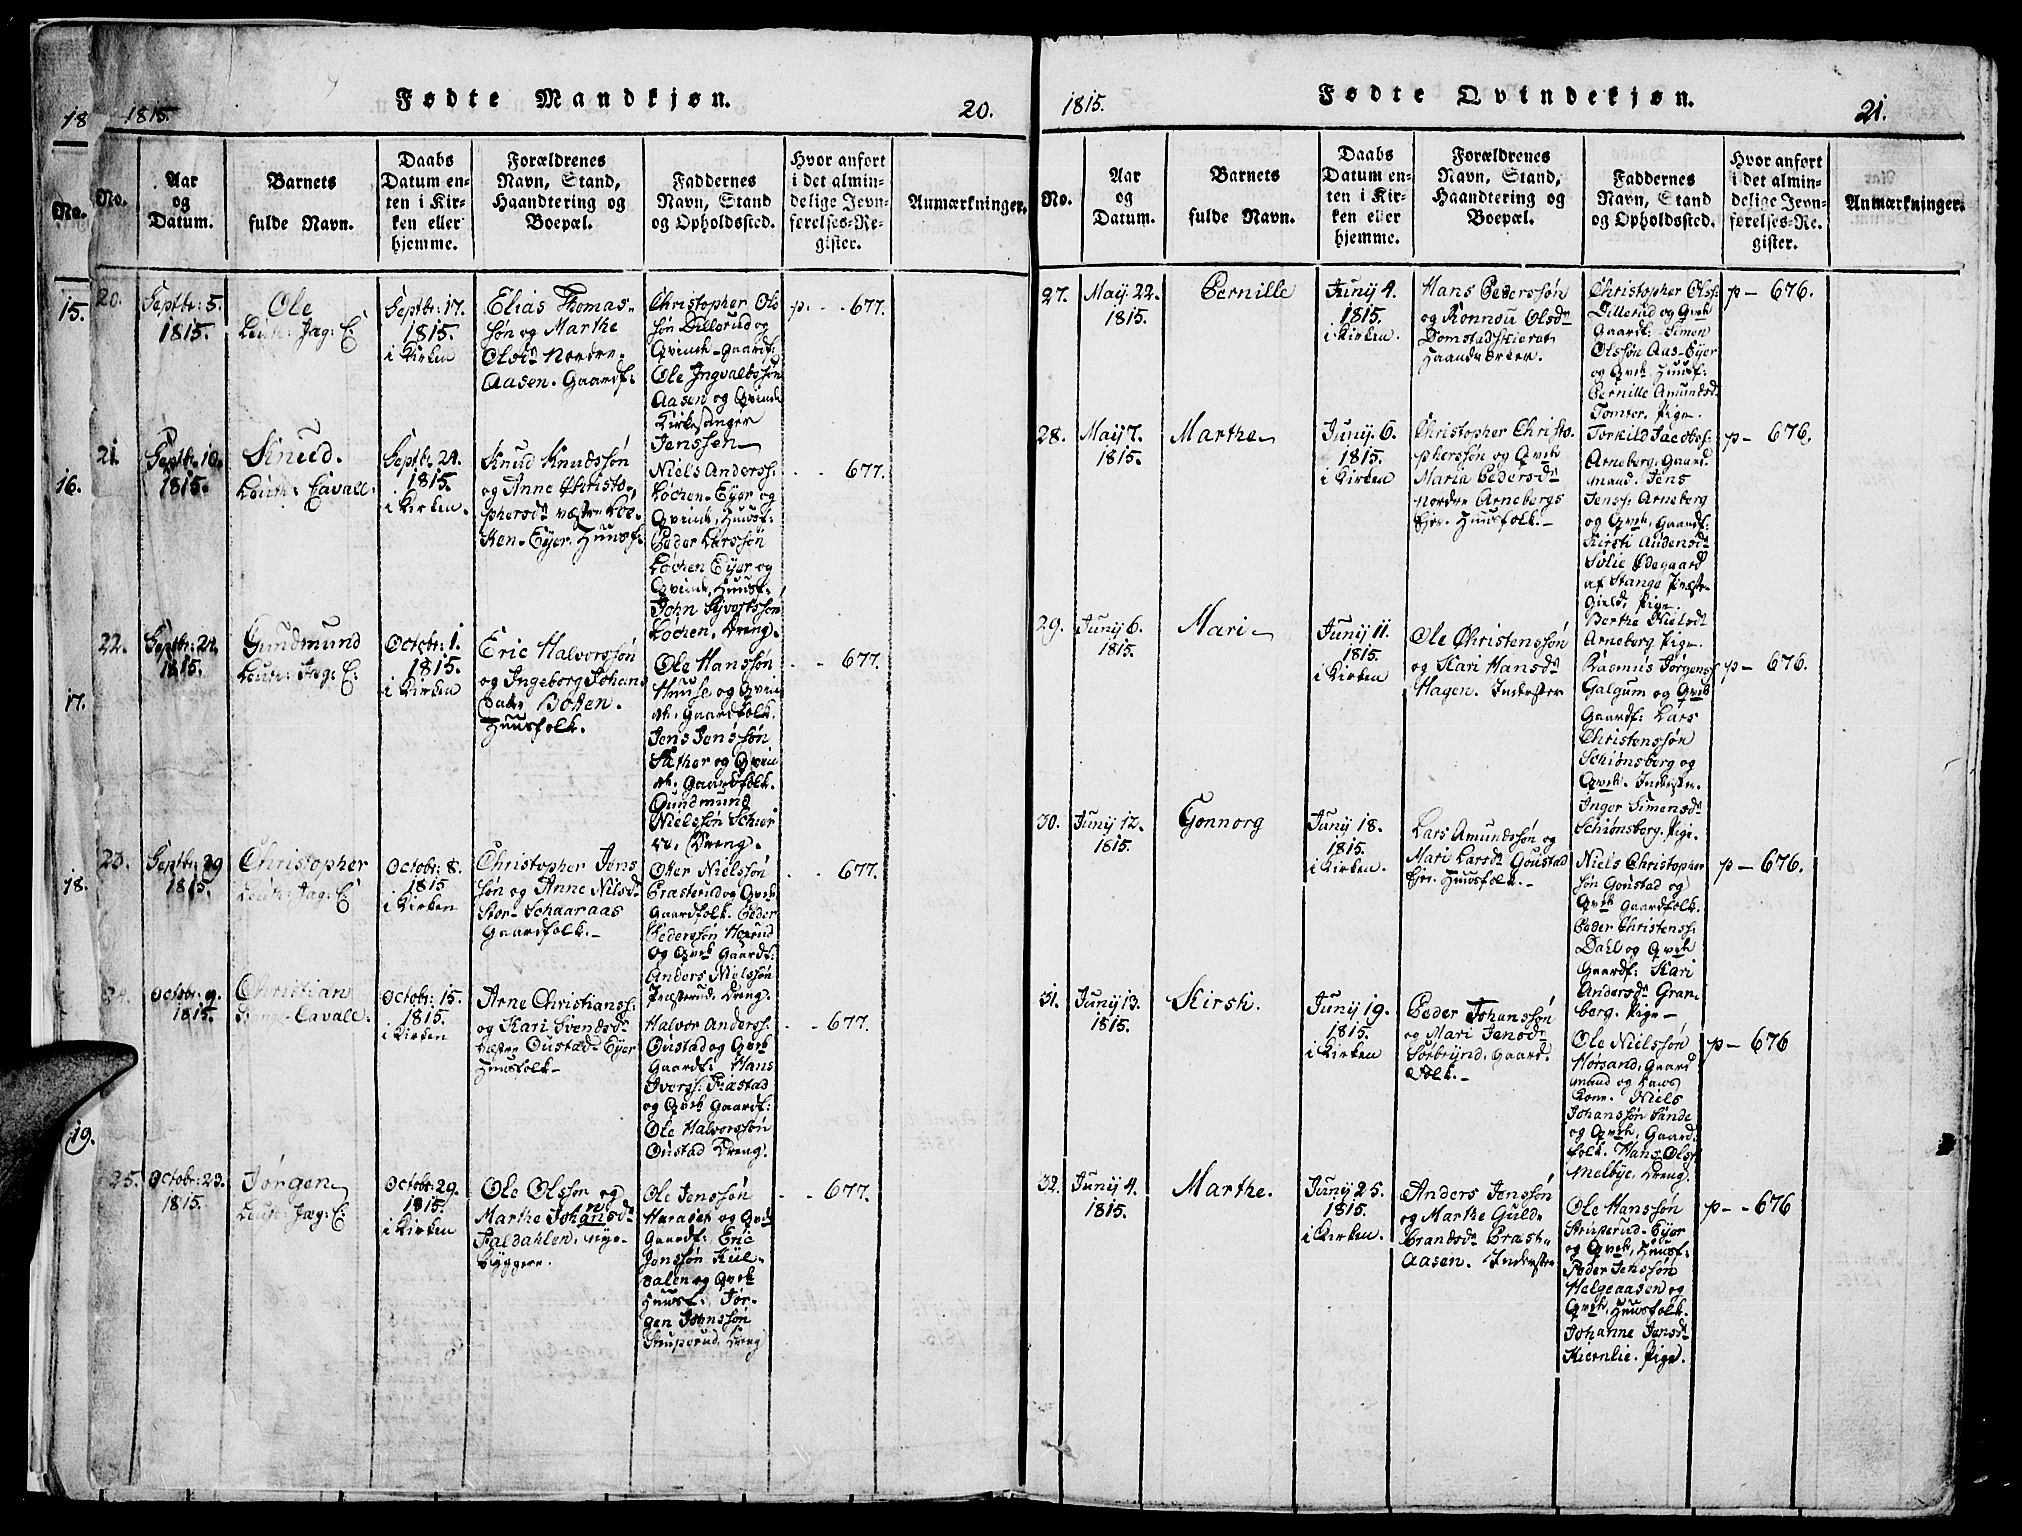 18
No.
15.
16.
17.
18.
19.
1815.
Fødte Mandkjøn.
20.
No.
Aar
og
Datum.
Barnets
fulde Navn.
Daabs
Datum en-
ten i Kir-
ken eller
hjemme.
Forældrenes
Navn, Stand,
Haandtering og
Boepæl.
Faddernes
Navn, Stand
og Opholdssted.
Hvor anført
i det almin-
delige Jevn-
førelses-Re-
gister.
Anmærkninger.
20.
Septbr: 5.
1815.
Ole
Leuth: Jæg: C
Septbr: 17.
1815.
i Kirken
Elias Thomas-
søn og Marthe
Olsdr Nordre-
Aasen. Gaardf:
Christopher Ole
søn Dillerud og
Qvinde-Gaardf:
Ole Ingvaldssøn
Aasen og Qvinde
Kirkesanger
Jenssen
p. - - 677.
21.
Septbr: 10.
1815.
Knud.
Leuth: Cavall:
Septbr. 24.
1815.
i Kirken.
Knud Knudssøn
og Anne Christo-
phersdr væstre Lø-
ken-Eyer. Huusf:
Niels Anderss:
Løchen-Eyer og
Qvinde, Huusf:
Peder Larssøn
Løchen Eyer og
Qvinde, Huusf:
John Syvertssøn
Løchen. Dreng.
- - 677.
22.
Septbr: 24.
1815.
Gundmund
Leuth: Jæg: C:
Octobr: 1.
1815.
i Kirken
Eric Halvorssøn
og Ingeborg Johans
Datter Botten.
Huusfolk.
Ole Hanssøn
Huuse og Qvin
de. Gaardfolk.
Jens Jenssøn
Sæther og Qvin
de. Gaardfolk.
Gundmund
Nielssøn Schier
Dreng.
- - 677.
23.
Septbr: 29
1815.
Christopher
Leuth: Jag: C
Octobr: 8.
1815
i Kirken
Christopher Jens
søn og Anne Nilsdr
Stor-Schaaraas
Gaardfolk.-
Otter Nielssøn
Præsterud og Qvde
Gaardfolk. Peder
Pederssøn
og Qvde Gaardf:
Anders Nielssøn
Præsterud, Dreng.
- - 677.
24.
Octobr: 9.
1815.
Christian
Cavall:
Octobr: 15.
1815.
i Kirken
Arne Christianss:
og Kari Svendsdr
væstre Oustad-Eyer
Huusfolk-
Halvor Anderss:
Oustad og Qvde
Gaardf: Hans
Iverss: Præstad
og Qvde Gaardf:
Ole Halvorssøn
Oustad Dreng.
- - 677.
25.
Octobr: 23.
1815.
Jørgen
Leuth: Jæg: C:
Octobr: 29.
1815.
i Kirken
Ole Olssøn og
Marthe Johansdr
Faldahlen, nye-
Byggere.
Ole Jenssøn
Haraset og Qvde
Gaardf: Eric
Jonssøn Kul-
dalen og Qvde
Huusf: Jør-
gen Johnssøn
Struperud. Dreng
- - 677.
1815.
Fødte Qvindekjøn.
21.
No.
Aar
og
Datum.
Barnets
fulde Navn.
Daabs
Datum en-
ten i Kir-
ken eller
hjemme.
Forældrenes
Navn, Stand,
Haandtering og
Boepæl.
Faddernes
Navn, Stand
og Opholdssted.
Hvor anført
i det almin-
delige Jevn-
førelses-Re-
gister.
Anmærkninger.
27.
May 22.
1815.
Pernille
Juny 4.
1815.
i Kirken.
Hans Pederssøn
og Ronnou Olsdr
Domstadskieret
Haandværker.
Christopher Olss:
Dillerud og Qvde
Gaardf: Simen
Olssøn Aas-Eyer
og Qvde, Huusf:
Pernille Amundsd.
Tomter. Pige.
p- 676.
28.
May 7.
1815.
Marthe
Juny. 6.
1815.
i Kirken
Christopher Christo-
pherssøn og Qvde
Maria Pedersdr
nordre Arnebergs
Ejer. Huusfolk.-
Torkild Jacobss:
Arneberg. Gaard
mand. Jens
Jenss: Arneberg
og Qvde, Gaardf:
Kirsti Audensdr
Solie Ødegaard
af Stange Præste-
Gield, Pige.
Berthe Nielsdr
Arneberg Pige.
p- 676.
29.
Juny 6.
1815.
Mari
Juny 11.
1815.
i Kirken
Ole Christenssøn
og Kari Hansdr
Hagen. Inderster
Rasmus Jørgenss
Galgum og Qvde
Gaardf: Lars
Christenssøn
Schiønsberg og
Qvde. Inderster.
Inger Simensdr
Schiønsberg. Pige.
p- 676.
30.
Juny 12.
1815.
Gonnorg
Juny 18.
1815.
i Kirken
Lars Amundssøn og
Mari Larsdr Goustad
Ejer. Huusfolk.-
Niels Christopher
søn Goustad og
Qvde Gaardfolk.
Peder Christenss:
Dahl og Qvde
Gaardf: Kari
Andersdr Gran-
berg. Pige-
p- 676.
31.
Juny 13.
1815.
Kirsti.
Juny 19.
1815.
i Kirken
Peder Johanssøn
og Mari Jensdr
Sørbrynd. Gaard-
Folk.-
Ole Nielssøn
Hørsand, Gaard
mand og Hans
Kone. Niels
Johanssøn Sande
og Qvde. Gaard-
folk. Hans Olss
Melbye. Dreng.
p- 676
32.
Juny 4.
1815.
Marthe.
Juny 25.
1815.
i Kirken.
Anders Jenssøn
og Marthe Guld-
brandsdr Præst-
Aasen. Inderster
Ole Hanssøn
Struperud-Eyer
og Qvde, Huusf:
Peder Jenssøn
Helgeaasen og
Qvde. Huusfolk.
Johanne Jensdr
Kiernlie. Pige.
p- - 676